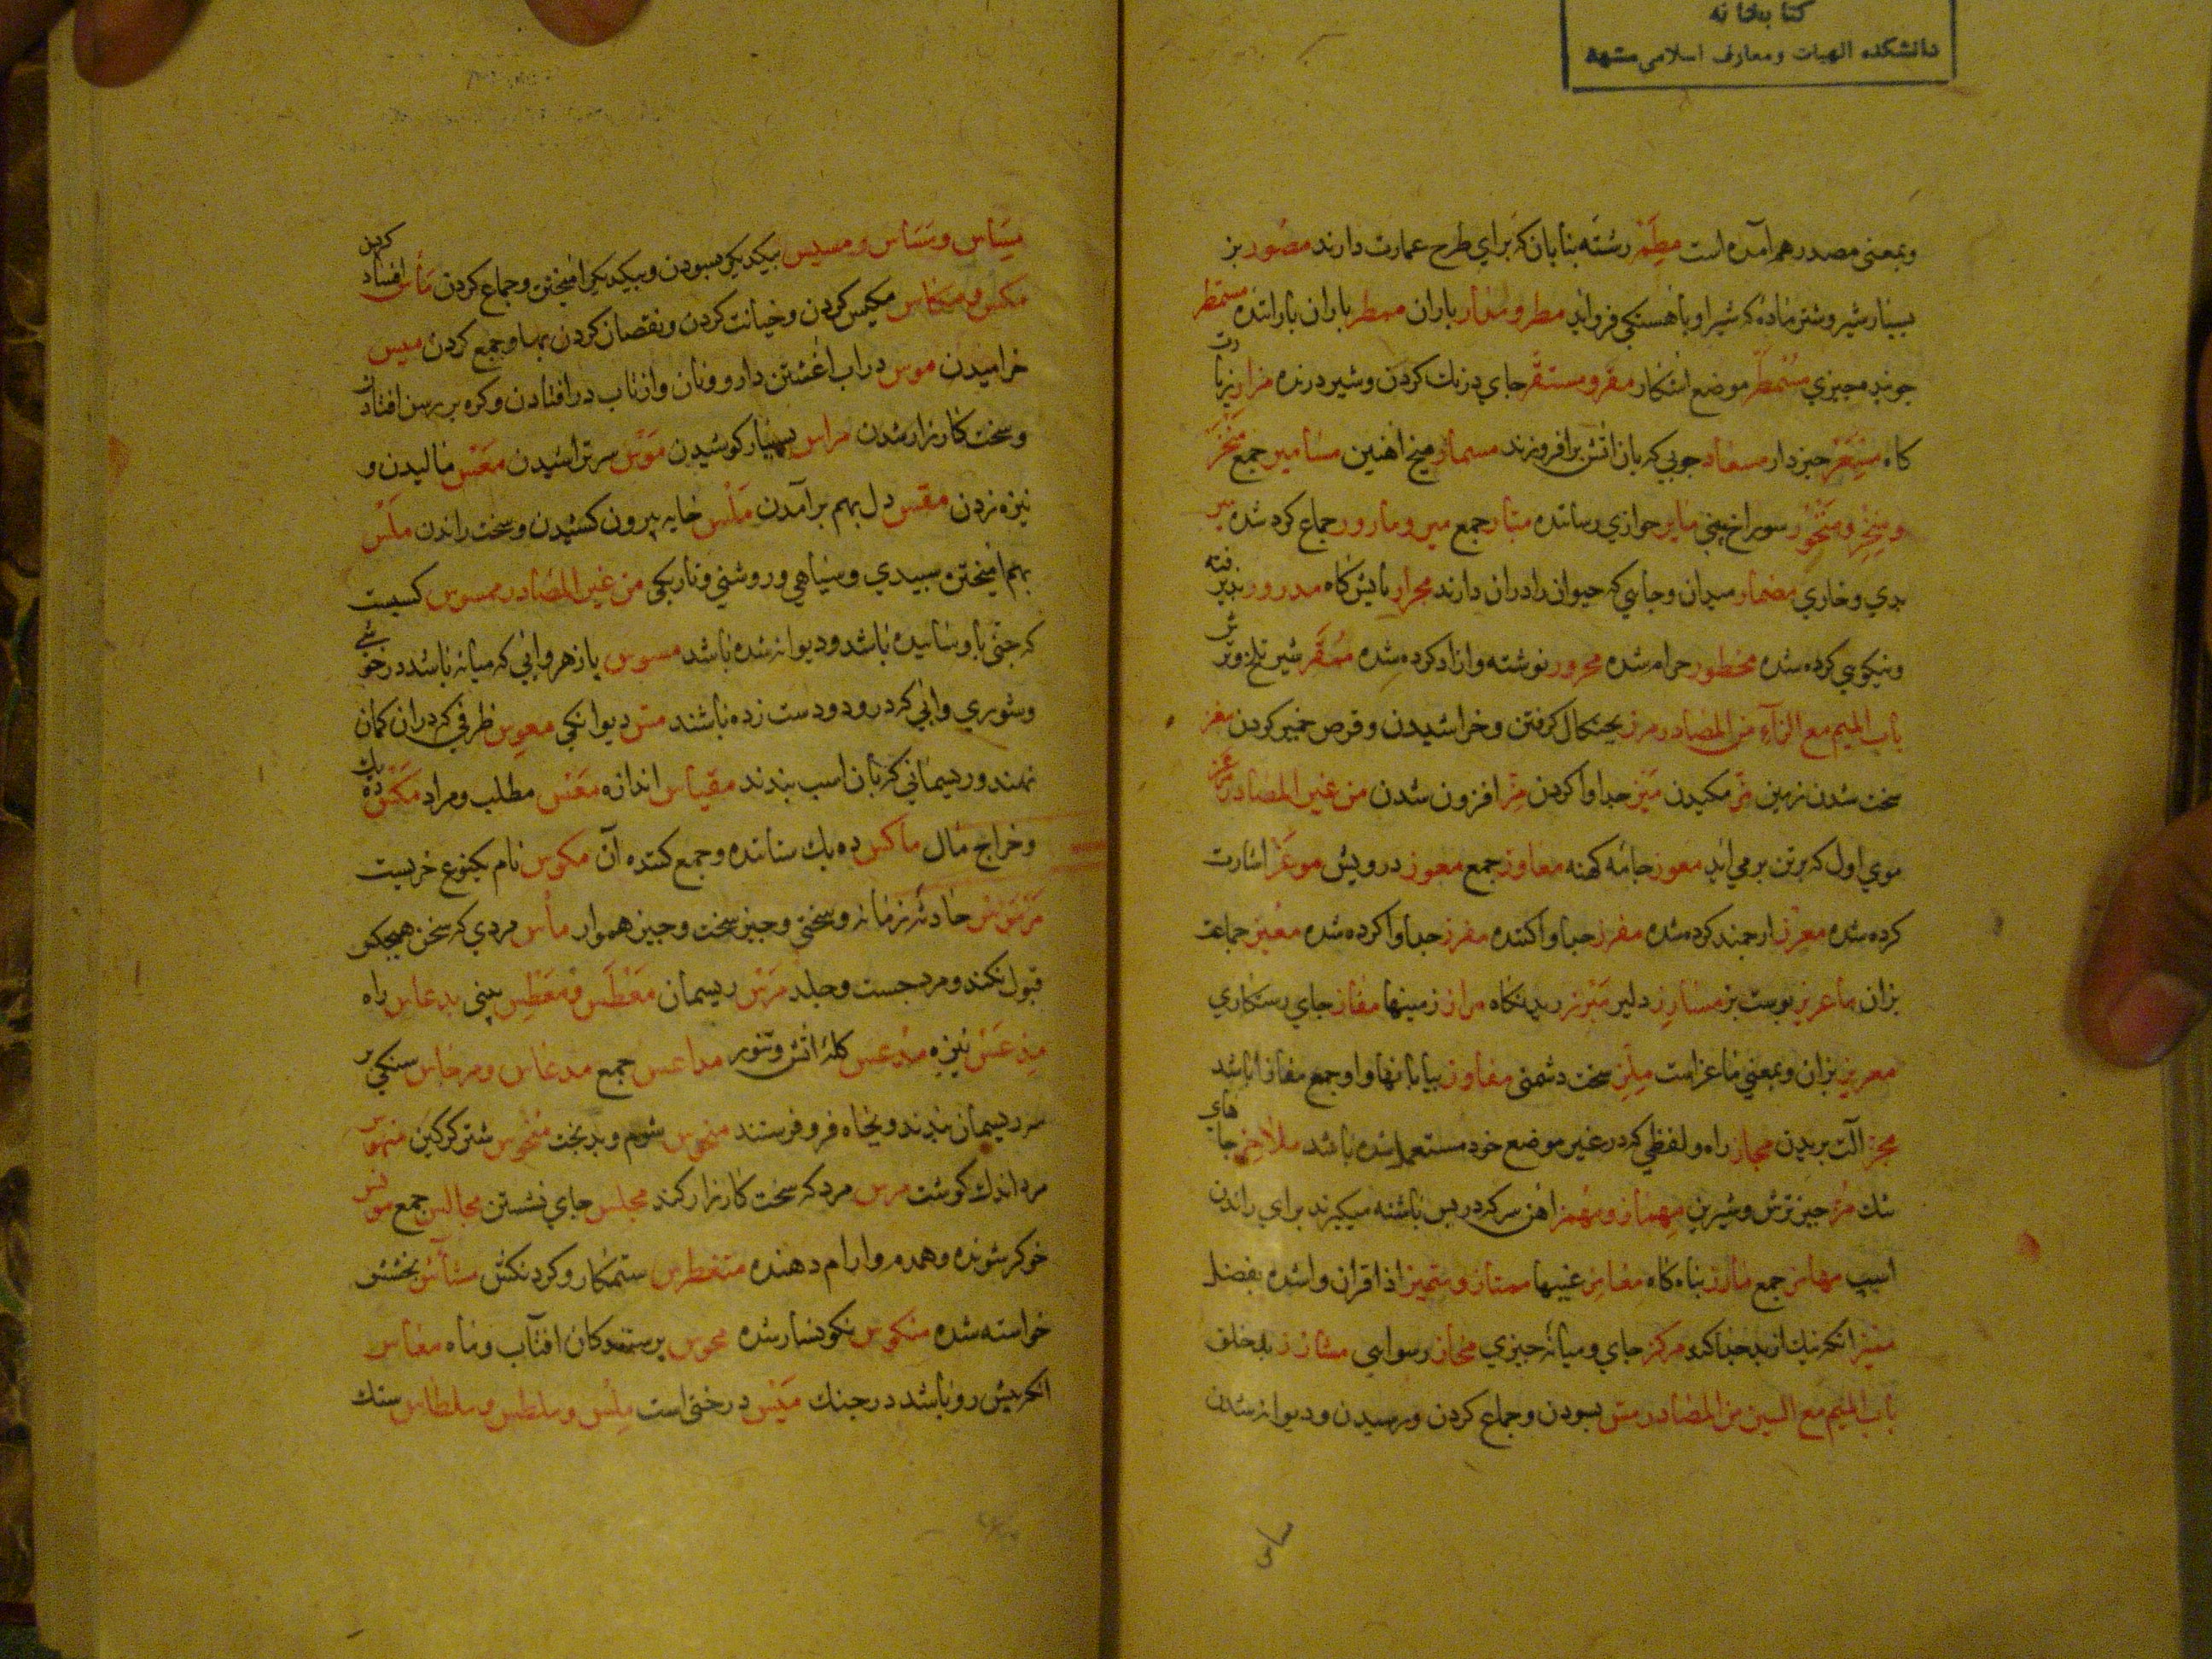 کتابخانه
دانشکده الهیات ومعارف اسلامی مشهد
وبمعنی مصدر هم امده است مطمر رشته بنایان که برای طرح عمارت دارند مصور بز
بسیار شیر وشتر ماده که شیر او باهستکی فرواید مطر ومدرار باران ممطر باران باراننده مستمطر
جوینده چیزی مستمطر موضع اشکار مقر ومستقر جای درنك کردن وشیر درنده مزار زیارت
کاه مسعر چیزدار مسعار چوبی که بان اتش برافروزند مسمار میخ اهنین مسامیر جمع منخر
ومنخر ومنخور سوراخ بینی مایر خواری رساننده میار جمع میر ومارور جماع کرد شده میر
بدی وخاری مضمار میدان وجایی که حیوان رادران دارند مجرار پایش کاه مدرور پذیرفته
ونیکویی کرده شده محظور حرام شده محرور نوشته وازاد کرده شده ممقر شیر تلخ وترش
باب المیم مع الزاء من المصادر مرز بچنکال کرفتن وخراشیدن وقرص خمیر کردن معز
سخت شدن زمین مز مکیدن میز جدا واکردن مز افزون شدن من غیر المصادر ماعز
موی اول که برتن برمی اید معوز جامه کهنه معاوز جمع معوز درویش موعز اشارت
کرده شده معزز ارجمند کرده شده مفرز جدا واکننده مفرز جدا واکرده شده معیز جماعت
بزان ماعزیز پوست بز مبارز دلیر مبرز ریدنکاه مرازز زمینها مفاز جای رستکاری
معزیز بزان وبمعنی ماعز است ملز سخت دشمنی مفاوز بیابانها واو جمع مفازا باشد
مجز آلت بریدن مجاز راه ولفظی که در غیر موضع خود مستعمل شده باشد ملاحز جاهای
تنك مز چیز ترش وشیرین مهماز ومهمز اهن سر کرد در پس پاشنه میکیرند برای راندن
اسب مهامز جمع مارز پناه کاه مغامز عیبها ممتاز ومتمیز از اقران واشده بفضل
ممیز انکه نیك از بد جدا کند مرکز جای ومیانه چیزی مخاز رسوایی مشارز بد خلق
باب المیم مع السین من المصادر مس بسودن وجماع کردن ورسیدن ودیوانه شدن
مساس ومساس ومسیس بیکدیکر بسودن وبیکدیکر امیختن وجماع کردن مأس افساد کردن
مکس ومکاس مکیس کردن وخیانت کردن ونقصان کردن بها وجمع کردن میس
خرامیدن موس دراب اغشتن دارو ونان وازتاب درافتادن وکره بر رسن افتادن
وسخت کارزار شدن مراس بسیار کوشیدن موس سرتراشیدن معس مالیدن و
نیزه زدن مقس دل بهم برآمدن ملس خایه بیرون کشیدن وسخت راندن ملس
بهم امیختن سپیدی وسیاهی وروشنی وتاریکی من غیر المصادر ممسوس کسیست
که جنی باو رسانیده باشد ودیوانه شده باشد مسوس پازهر وابی که میانه باشد در خوشی
وشوری وابی که درو دودست زده باشند مس دیوانکی معوس ظرفی که دران کمان
نهند وریسمانی که بان اسب بندند مقیاس اندازه مغس مطلب ومراد مکس ده یك
وخراج مال ماکس ده یك ستاننده وجمع کننده آن مکوس نام یکنوع خریست
مرمریس حادثه زمانه وسختی وچیز سخت وچیز هموار مأس مردی که سخن هیچکس
قبول نکند ومرد چست وجلد مرس ریسمان معطس ومعطس بینی مدعاس راه
مدعس نیزه مدعس کله اتش وتنور مداعس جمع مدعاس ومرجاس سنکی بر
سر ریسمان بندند وبچاه فرو فرستند منحوس شوم وبدبخت منخوس شتر کرکین منهوس
مرد اندك کوشت مرس مرد که سخت کارزار کند مجلس جای نشستن مجالس جمع مونس
خوکر شونده وهمدم وارام دهنده متغطرس ستمکار وکردنکش مستأس بخشش
خواسته شده منکوس نکونسار شده مجوس پرستندکان افتاب وماه مغامس
انکه پیش رو باشد در جنك میس درختی است ملس وملطس وملطاس سنك